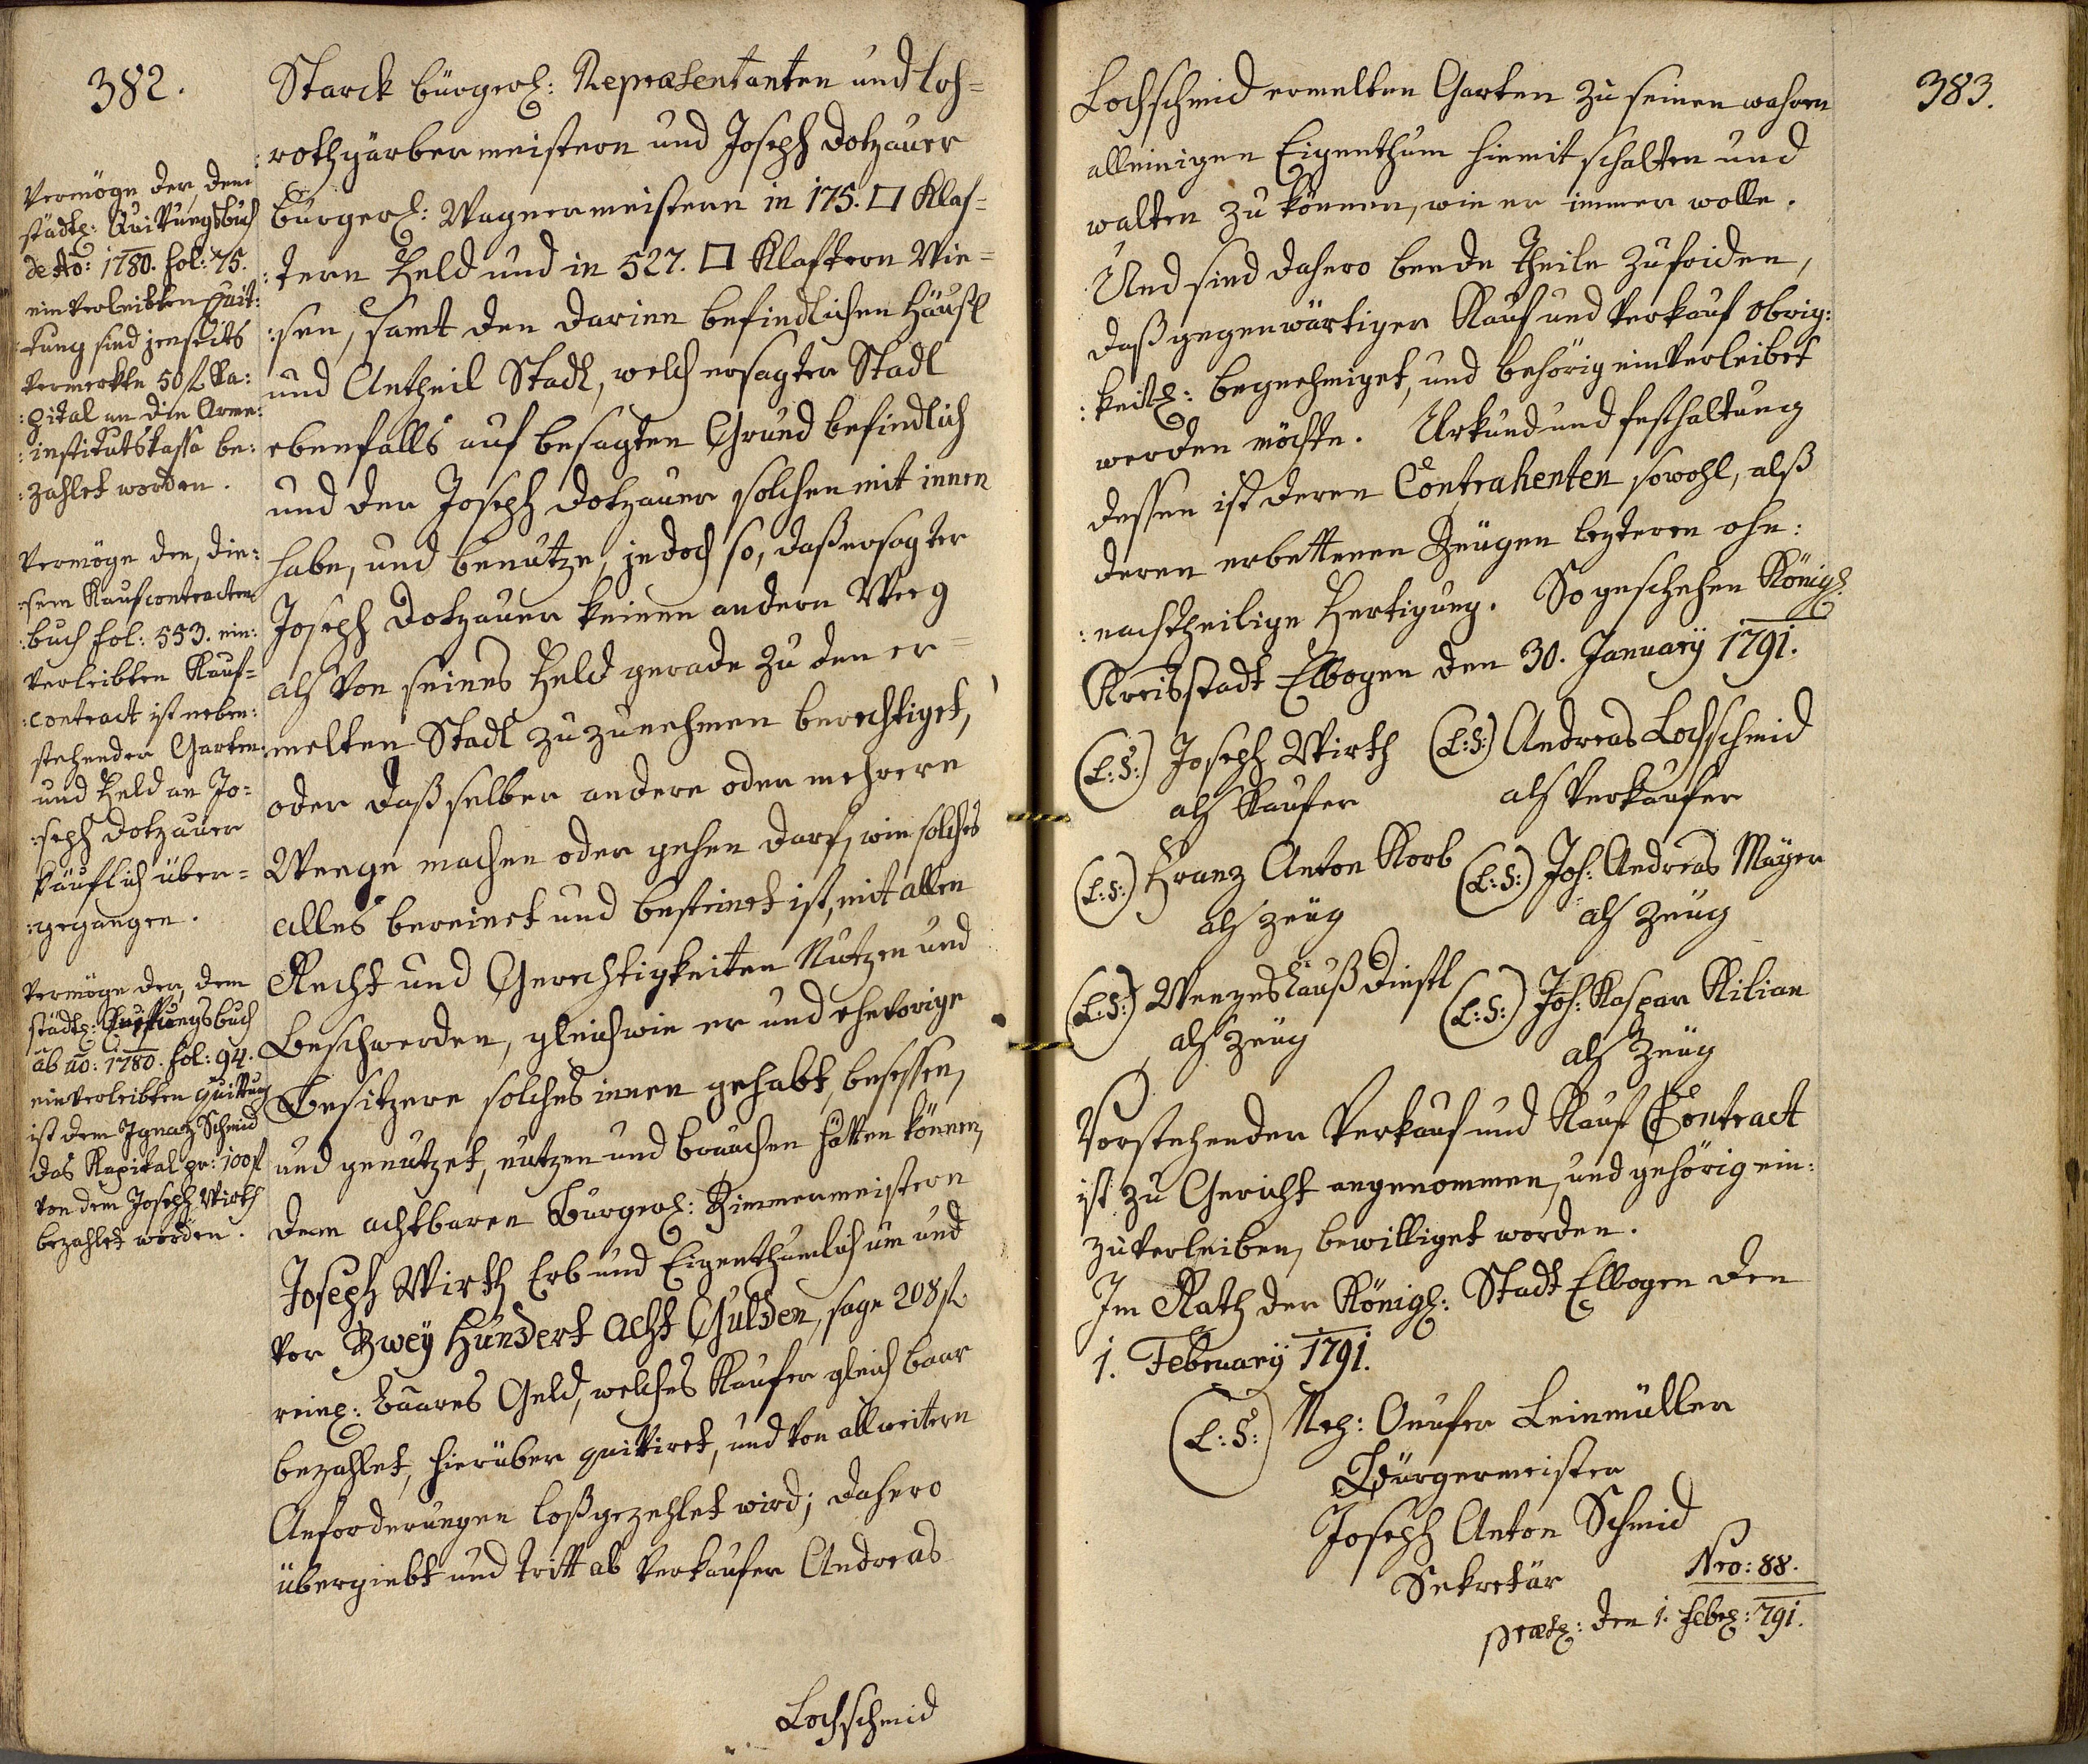 382.
Vermöge der, dem
städtl: Quittungsbuch
de Ao: 1780. fol: 75.
einverleibten Quit:
:tung sind jenseits
vermerkte 50 fl Ka:
:pital an die Arme:
:institutskassa be:
:zahlet worden.
Vermöge den, die:
:sem Kaufcontracten
:buch fol: 553. ein:
verleibten Kauf=
:contract ist neben:
stehender Garten
und Feld an Jo=
:seph Dotzauer
käuflich über=
:gegangen.
Vermöge der, dem
städtl: Quittungsbuch
ab ao: 1780. fol: 94.
einverleibten Quittung
ist dem Ignatz Schmid
das Kapital pr: 100 fl
von dem Joseph Wirth
bezahlet worden.
Starck bürgerl: Repraesentanten und loh=
:rothgärbermeistern und Joseph Dotzauer
bürgerl: Wagnermeistern in 175. □ Klaf=
:tern Feld und in 527. □ Klaftern Wie=
:sen, samt den darinn befindlichen Häusl
und Antheil Stadl, welch ersagter Stadl
ebenfalls auf besagten Grund befindlich
und der Joseph Dotzauer solchen mit innen
habe, und benutze, jedoch so, daß ersagter
Joseph Dotzauer keinen andern Weeg
als von seines Feld gerade zu den er=
:melten Stadl zu zunehmen berechtiget,
oder daß selber andere oder mehrere
Weege machen oder gehen darf, wie solches
alles bereinet und besteinet ist, mit allen
Recht und Gerechtigkeiten Nutzen und
Beschwerden, gleichwie er und ehevorige
Besitzere solches innen gehabt, besessen,
und genutzet, nutzen und brauchen hätten können,
dem achtbaren Bürgerl: Zimmermeistern
Joseph Wirth Erb und Eigenthumlich um und
vor Zwey Hundert Acht Gulden, sage 208 fl
reinl: baares Geld, welches Kaufer gleich baar
bezahlet, hierüber quitiret, und von all weitern
Anforderungen loßgezehlet wird; dahero
übergiebt und tritt ab Verkaufer Andreas
Lochschmid
383.
Lochschmid ermelten Garten zu seinen wahren
alleinigen Eigenthum hiemit schalten und
walten zu können, wie er immer wolle.
Und sind dahero beede Theile zufriden,
daß gegenwärtiger Kauf und Verkauf obrig:
:keitl: begnehmiget, und behörig einverleibet
werden möchte. Urkund und festhaltung
dessen ist deren Contrahenten sowohl, alß
deren erbettenen Zeugen lezteren ohn:
:nachtheilige Fertigung. So geschehen Königl:
Kreisstadt Elbogen den 30. January 1791.
(L:S:) Joseph Wirth (L:S:) Andreas Lochschmid
als Kaufer als Verkaufer
(L:S:) Franz Anton Korb (L:S:) Joh: Andreas Mayer
als Zeug als Zeug
(L:S:) Wenzeslauß Dießl (L:S:) Joh: Kaspar Kilian
als Zeug als Zeug
Vorstehender Verkauf und Kauf Contract
ist zu Gericht angenommen, und gehörig ein:
zuverleiben, bewilliget worden.
Im Rath der Königl: Stadt Elbogen den
1. February 1791.
(L:S:) Onufer Leinmüller
Bürgermeister
Joseph Anton Schmid
Sekretär
Nro: 88.
praes: den 1. Febr: 791.